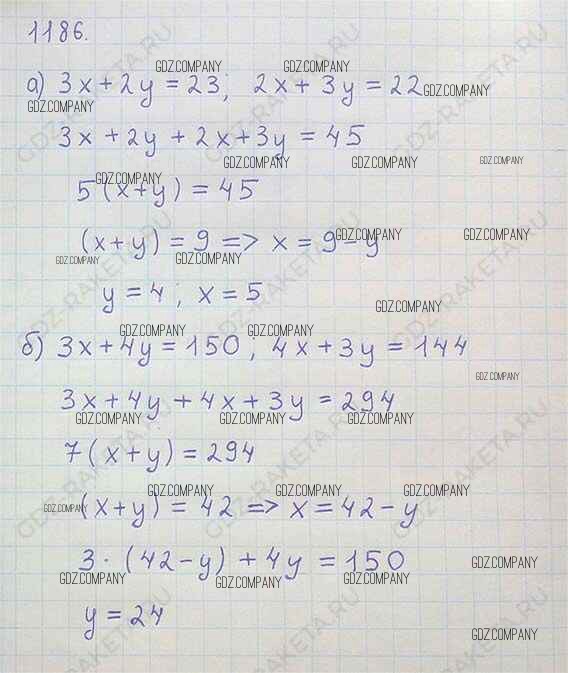 1186.
GDZ.COMPANY GDZ.COMPANY
а) 3x + 2y = 23; 2x + 3y = 22 GDZ.COMPANY
GDZ.COMPANY
3x + 2y + 2x + 3y = 45
GDZ.COMPANY GDZ.COMPANY GDZ.COMPANY
GDZ.COMPANY
5(x+y) = 45
GDZ.COMPANY GDZ.COMPANY
(x+y) = 9 => x = 9 - y
GDZ.COMPANY GDZ.COMPANY
y = 4; x = 5
GDZ.COMPANY
GDZ.COMPANY GDZ.COMPANY
б) 3x + 4y = 150; 4x + 3y = 144
GDZ.COMPANY
3x + 4y + 4x + 3y = 294
GDZ.COMPANY GDZ.COMPANY GDZ.COMPANY
7(x+y) = 294
GDZ.COMPANY GDZ.COMPANY GDZ.COMPANY
GDZ.COMPANY (x+y) = 42 => x = 42 - y
3 · (42 - y) + 4y = 150 GDZ.COMPANY
GDZ.COMPANY GDZ.COMPANY GDZ.COMPANY
y = 24
GDZ.COMPANY
GDZ-RAKETA.RU
GDZ-RAKETA.RU
GDZ-RAKETA.RU
GDZ-RAKETA.RU
GDZ-RAKETA.RU
GDZ-RAKETA.RU
GDZ-RAKETA.RU
GDZ-RAKETA.RU
GDZ-RAKETA.RU